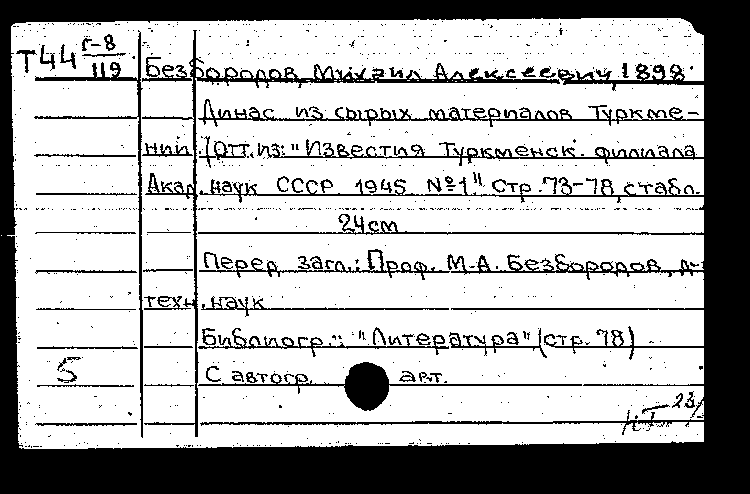 Т44 г-8/119 Безбородов, Михаил Алексеевич, 1898
Динас из сырых материалов Туркме-
нии (Отт.из: "Известия Туркменск. филиала
Акад. наук СССР 1945 №1" Стр.73-78, с табл.
24 см
Перед загл.: Проф. М.А. Безбородов, д-
техн. наук
Библиогр.: "Литература" (стр. 78)
5 С автогр. авт.
23/